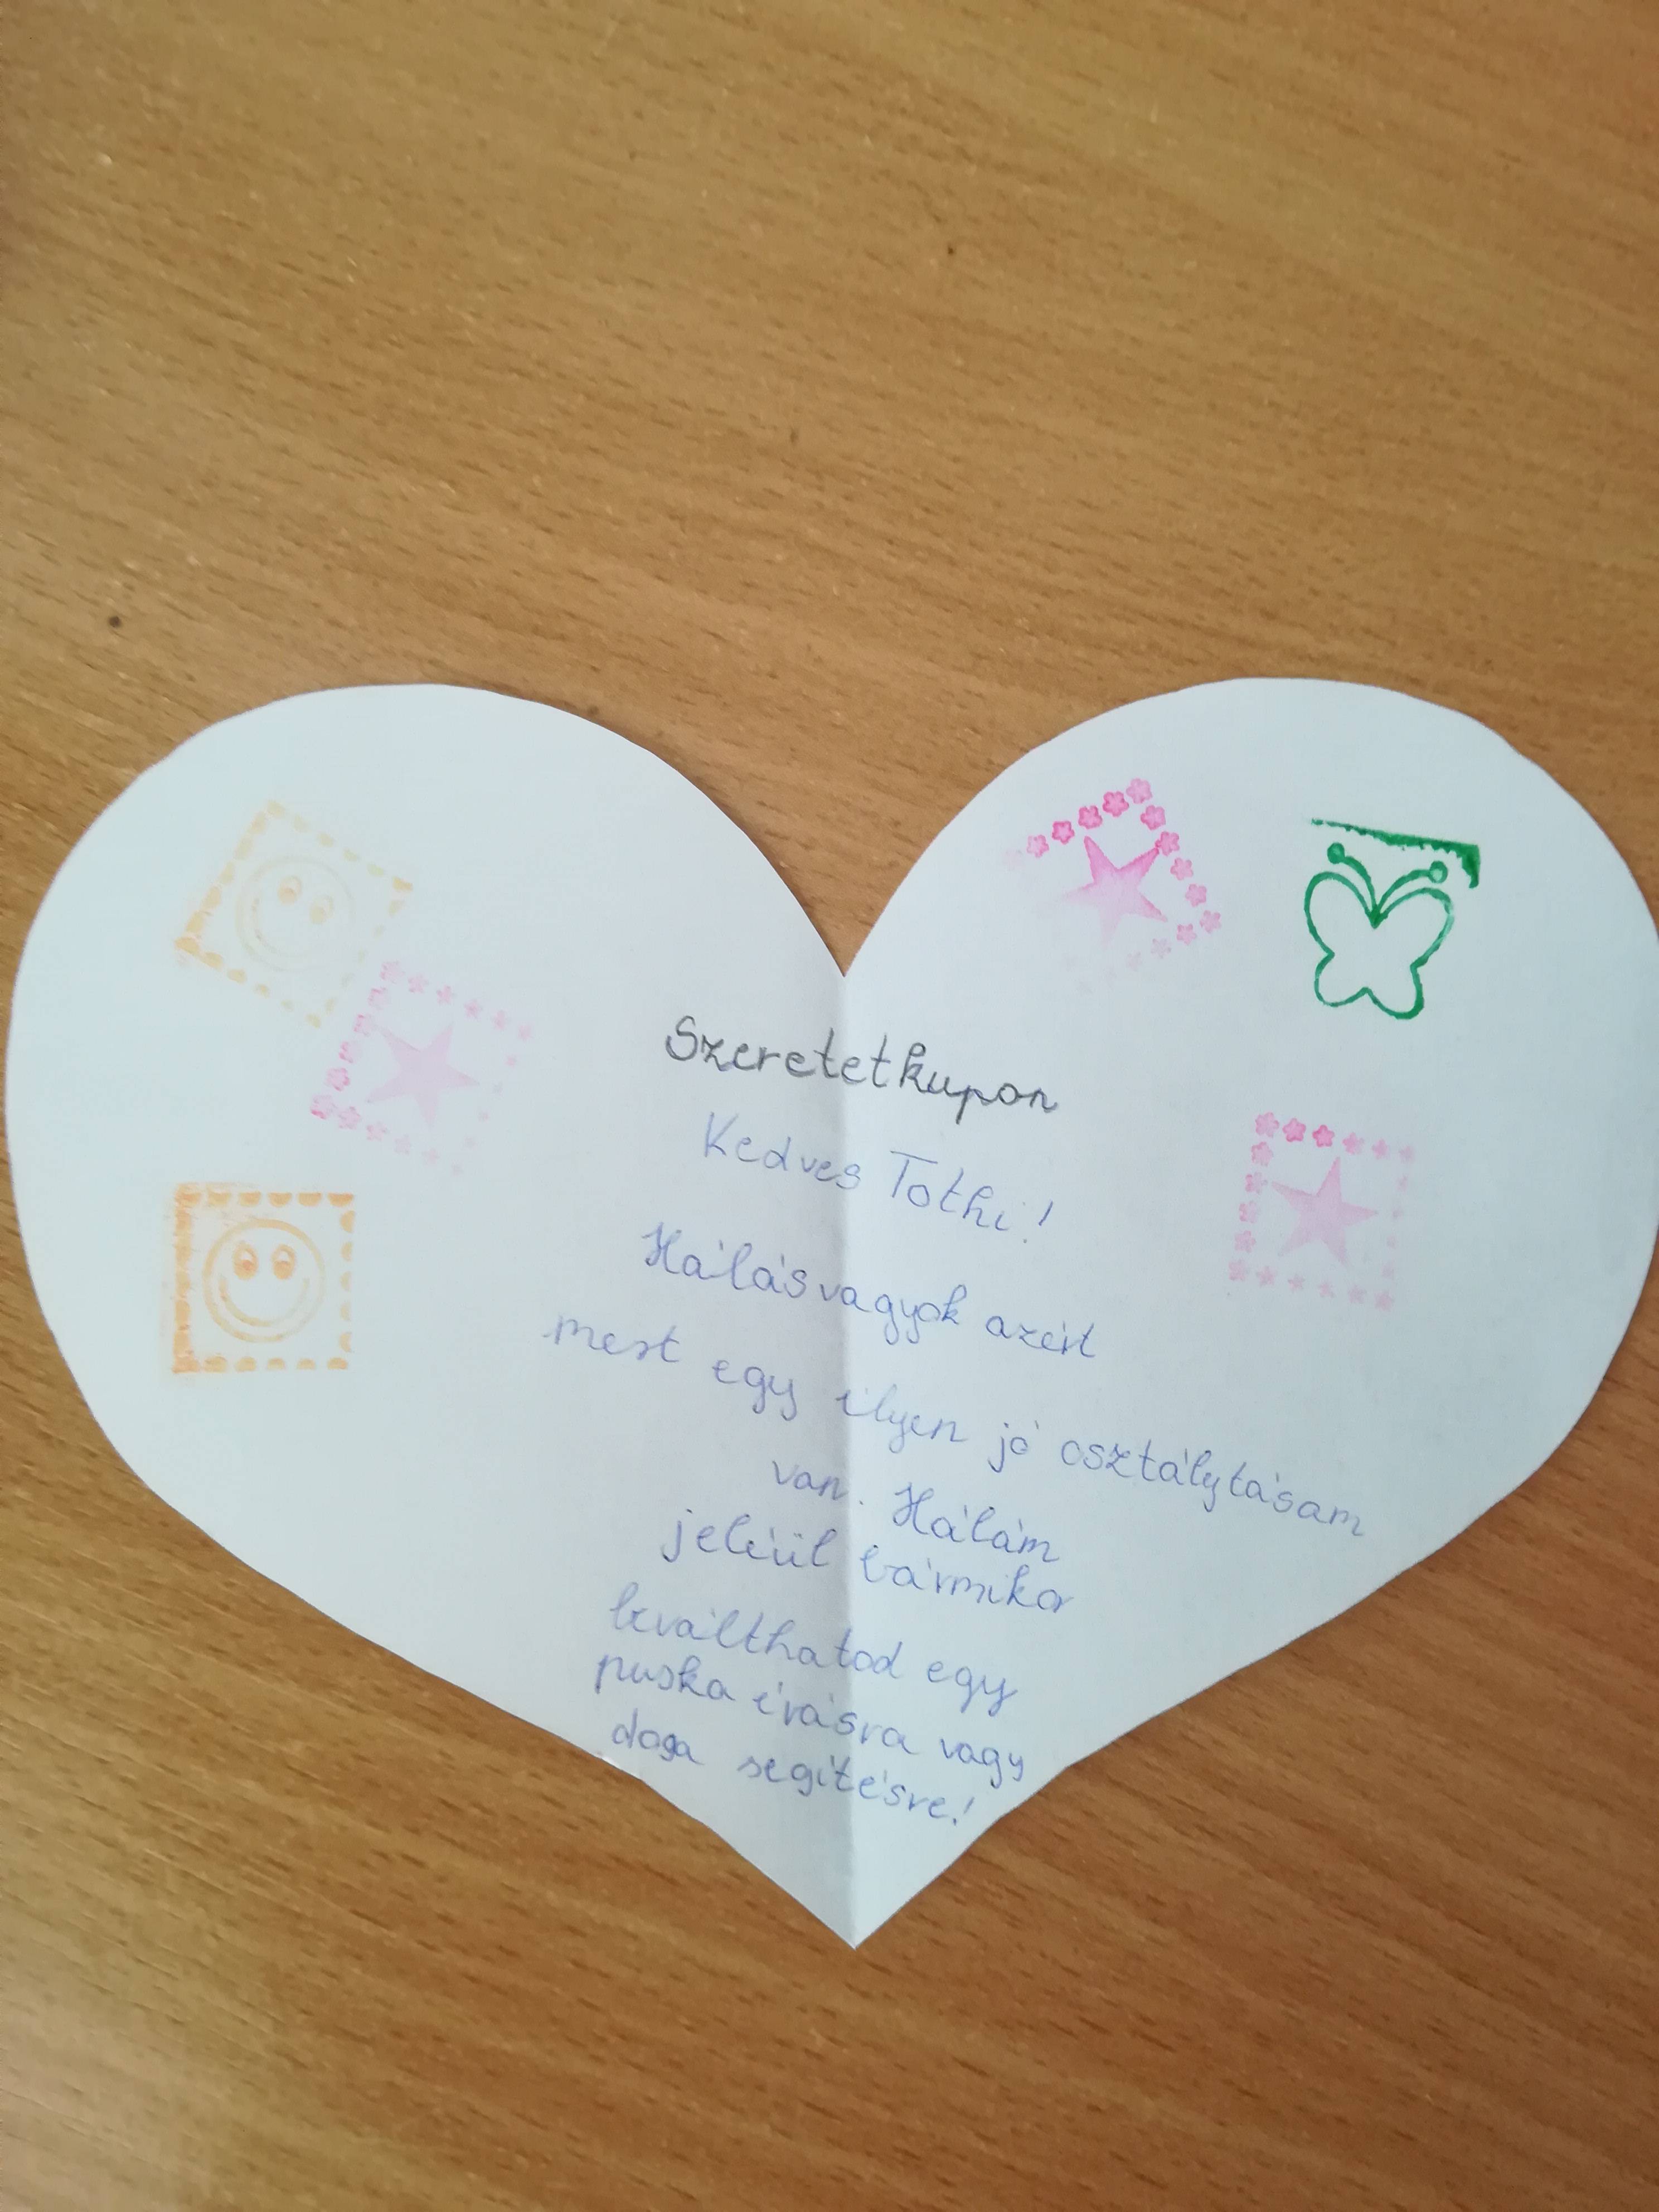 Szeretetkupon
Kedves Tothi!
Hálás vagyok azért
mert egy ilyen jó osztálytásam
van. Hálám
jeléül bármikor
beválthatod egy
puska írásra vagy
doga segítésre!